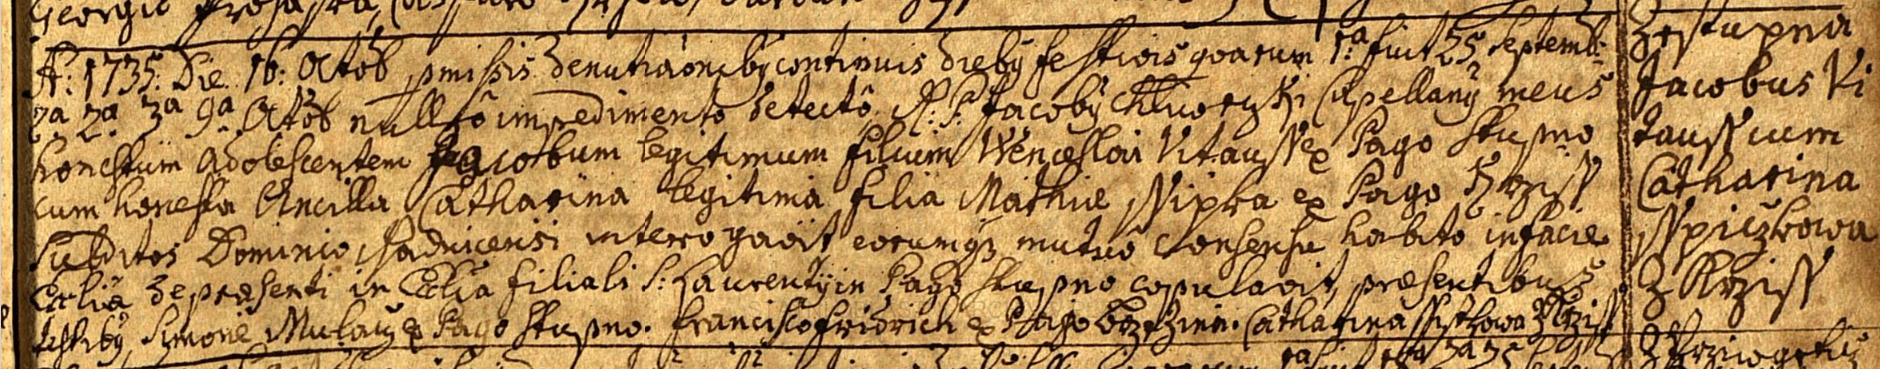 A: 1735. Die 16: Octob praemissis denutiaonibg continuis diebg festivis quarum 1.a fuit 25 Septemb:
2a 3a 9a Octob nullô impedimentô detectô A: P: Jacobg Capellang meus
honestum adolescentem Jacobum legitimum filium Wenceslai Vitauss ex Pago Stupno
cum honesta Ancilla Catharina legitima filia Mathie ex Pago Krziss
Subditos Dominio Radnicensi interrogavit eorumqz mutuô consensu habito in facie
Ecclia de praesenti in Ecclia filiali S: Laurentÿ in Pago Stupno copulavit, praesentibus
testibg, Simone Mulacz ex Pago Stupno. Francisco Fridrich ex Pago Brzezina. Catharina z Krziss
Z Stupna
Jacobus Vi
tauss cum
Catharina
Sspiczkowa
Z Krziss